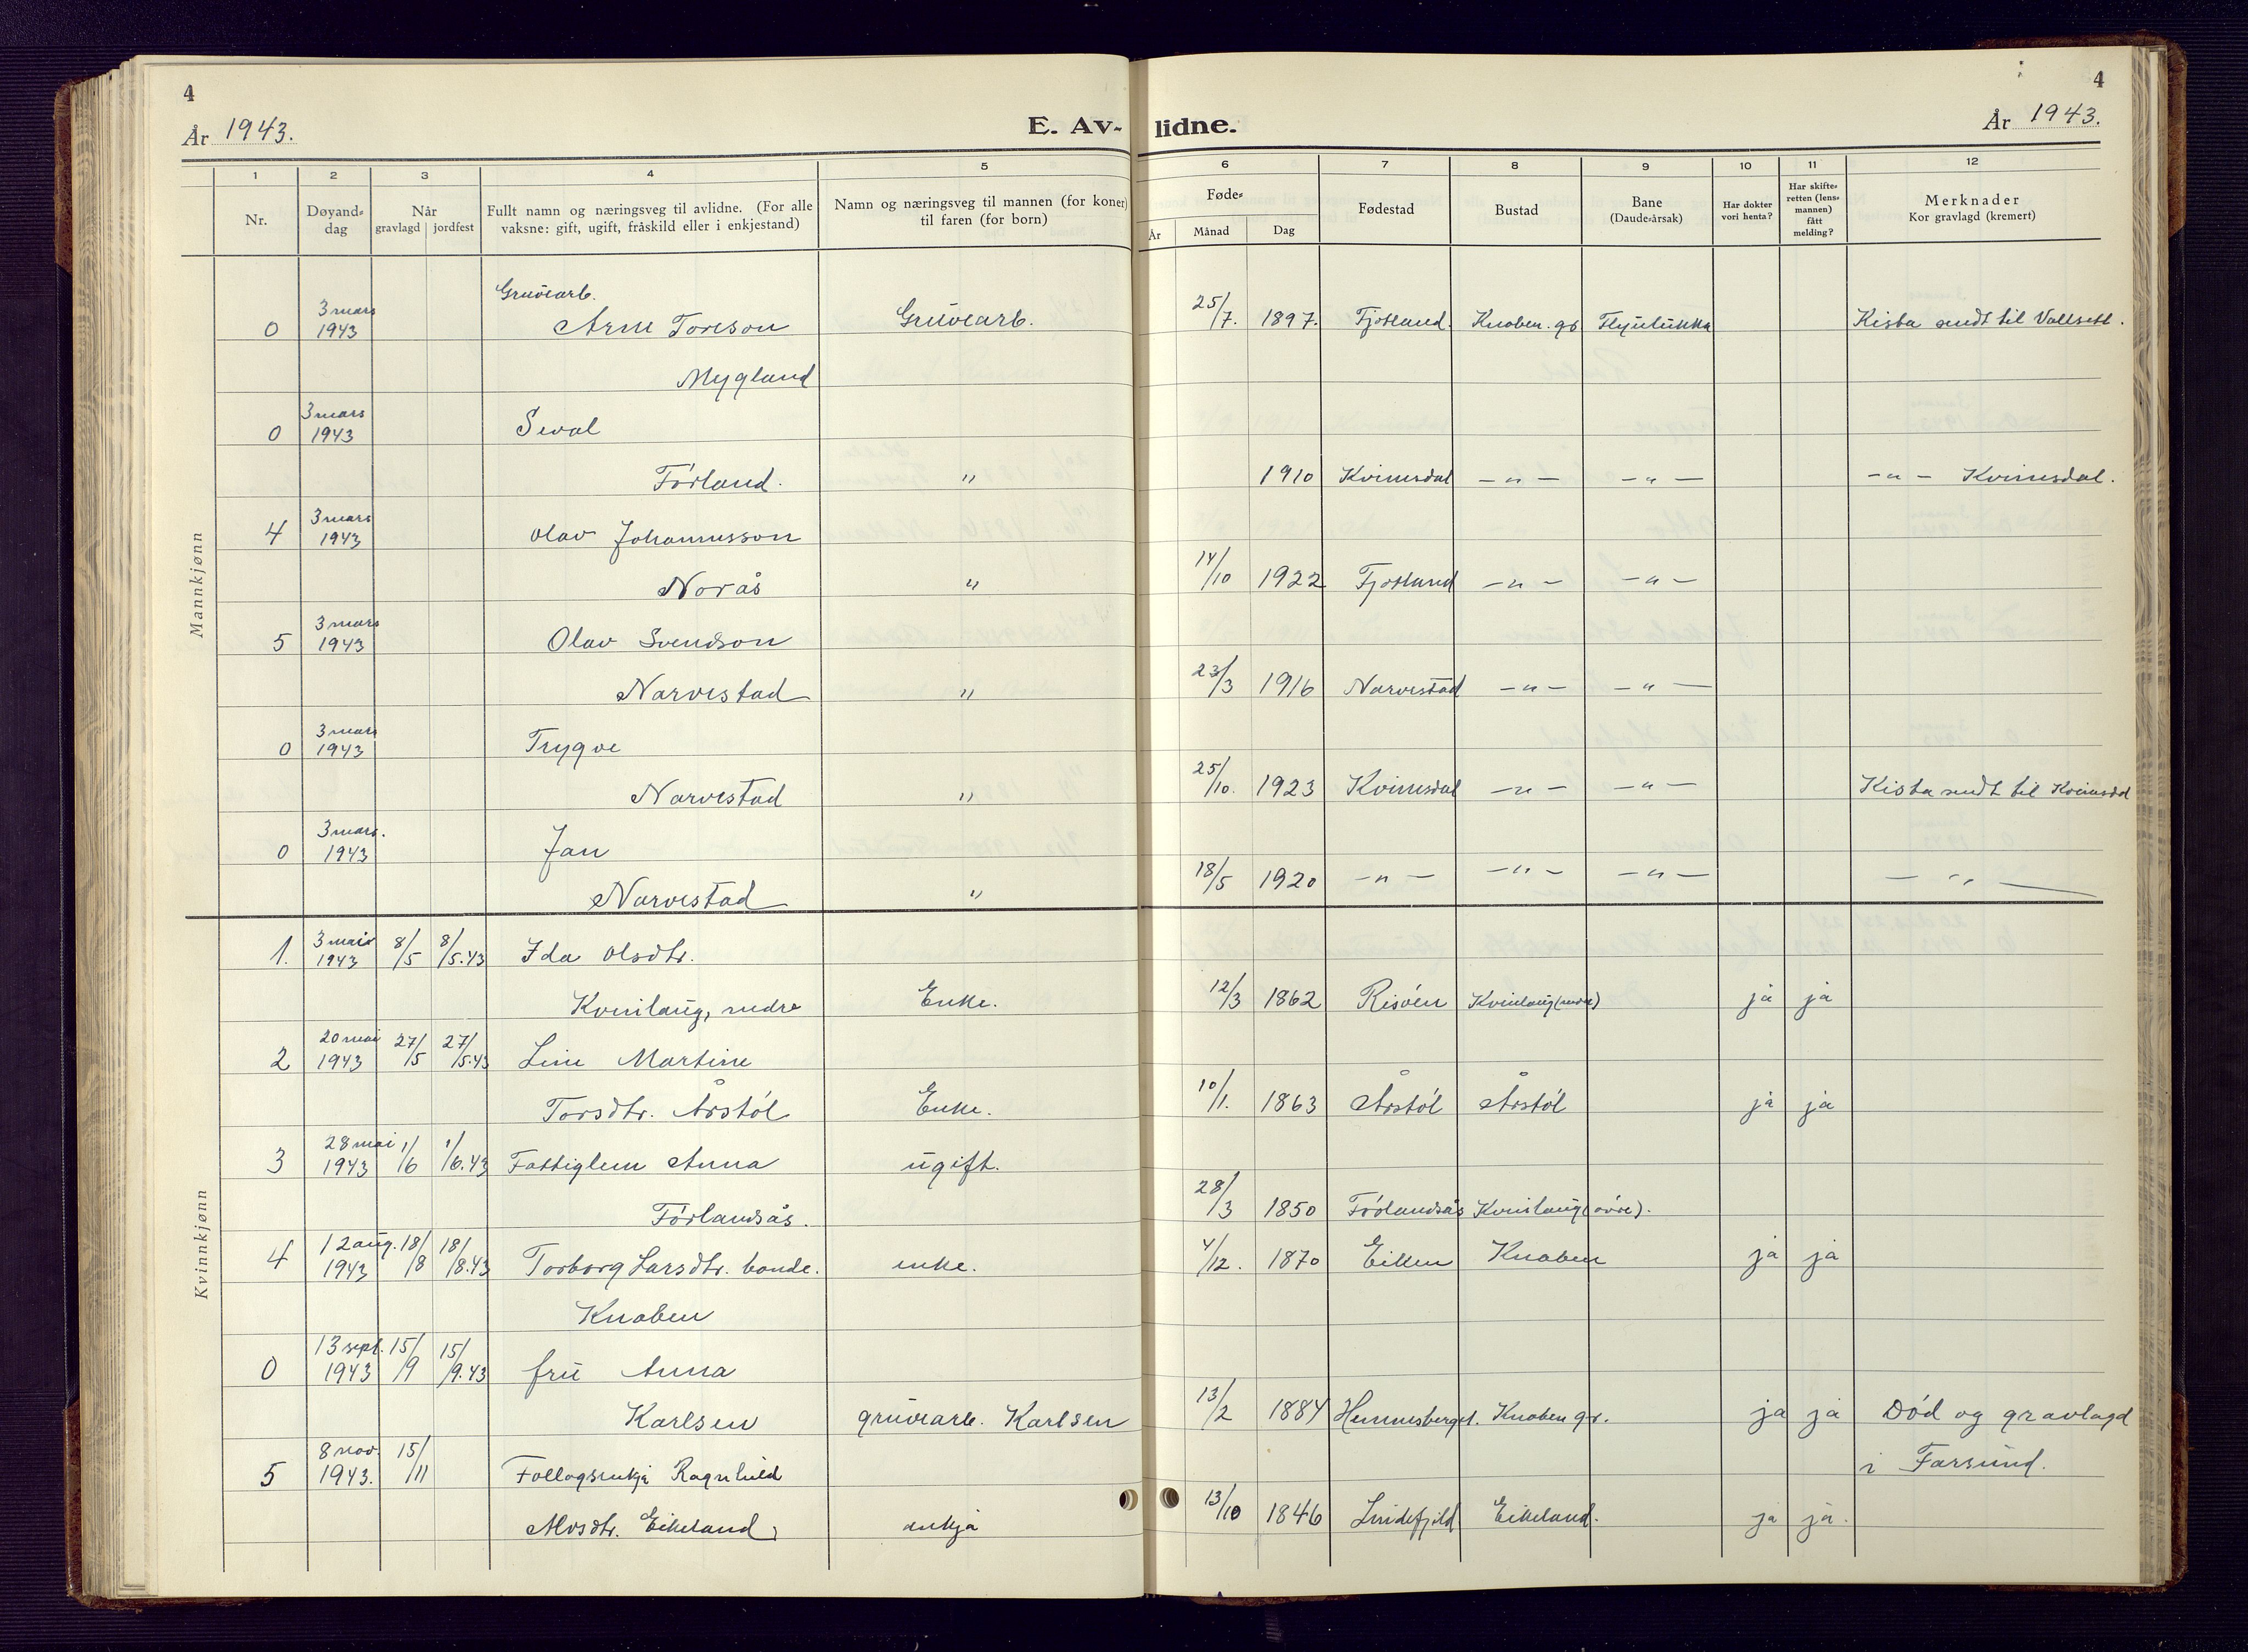 4
4
År 1943.
E. Av- lidne.
År 1943.
1 2 3 4 5 6 7 8 9 10 11 12
Nr.
Døyand-
dag
Når
gravlagd jordfest
Fullt namn og næringsveg til avlidne. (For alle
vaksne: gift, ugift, fråskild eller i enkjestand)
Namn og næringsveg til mannen (for koner)
til faren (for born)
Føde-
År Månad Dag
Fødestad
Bustad
Bane
(Daude-årsak)
Har dokter
vori henta?
Har skifte-
retten (lens-
mannen)
fått
melding?
Merknader
Kor gravlagd (kremert)
Mannkjønn
Gruvearb.
0 3 mars 1943 Arne Toreson Gruvearb. 25/7. 1897. Fjotland. Knaben. gr. Flyulukka Kista sendt til
Mygland
0 3 mars 1943 Seval
Førland. " 1910 Kvinesdal -"- -"- -"- Kvinesdal.
4 3 mars 1943 Olav Johannesson
Norås " 14/10 1922 Fjotland -"- -"-
5 3 mars 1943 Olav Svendson
Narvestad " 23/3 1916 Narvestad -"- -"-
0 3 mars 1943 Trygve
Narvestad " 25/10. 1923 Kvinesdal -"- -"- Kista sendt til Kvinesdal
0 3 mars. 1943 Jan
Narvestad " 18/5 1920 -"- -"- -"- -"-
Kvinnkjønn
1. 3 mai 1943 8/5 8/5.43 Ida Olsdtr.
Kvinlaug, nedre Enke. 12/3 1862 Risøen Kvinlaug (nedre) ja ja
2 20 mai 1943 27/5 27/5.43 Line Martine
Torsdtr. Årstøl Enke. 10/1. 1863 Årstøl Årstøl ja ja
3 28 mai 1943 1/6 1/6.43 Fattiglem Anna ugift.
Førlandsås. 28/3 1850 Førlandsås Kvinlaug (øvre).
4 12 aug. 1943 18/8 18/8.43 Torborg Larsdtr. bonde. enke. 4/12. 1870 Eiken Knaben ja ja
Knaben
0 13 sept. 1943 15/9 15/9.43 fru Anna
Karlsen gruvearb. Karlsen 13/2 1884 Hennesberget. Knaben gr. ja ja Død og gravlagd
5 8 nov. 1943. 15/11 Follogsenkja Ragnhild i Farsund.
Alvsdtr. Eikeland, enkja 13/10 1846 Lindefjeld Eikeland. ja ja.